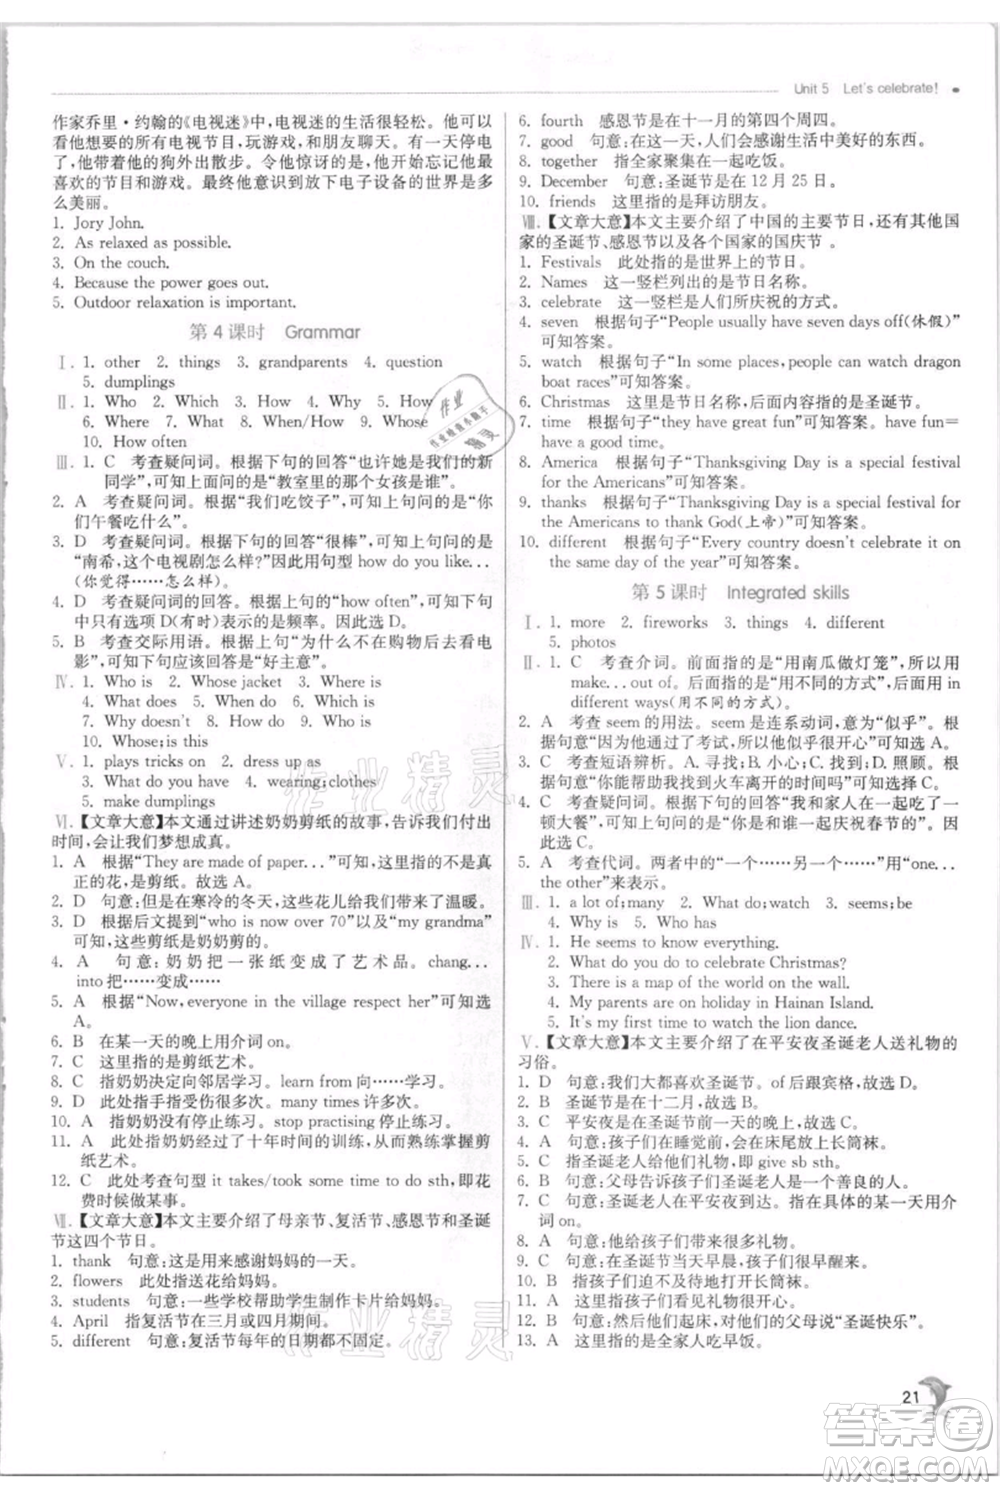 Unit 5 Let's celebrate!
作家乔里·约翰的《电视迷》中,电视迷的生活很轻松。他可以
看他想看的所有电视节目,玩游戏,和朋友聊天。有一天停电
了,他带着他的狗外出散步。令他惊讶的是,他开始忘记他最
喜欢的节目和游戏。最终他意识到放下电子设备的世界是多
么美丽。
1. Jory John.
2. As relaxed as possible.
3. On the couch.
4. Because the power goes out.
5. Outdoor relaxation is important.
第 4 课时 Grammar
Ⅰ. 1. other 2. things 3. grandparents 4. question
5. dumplings
Ⅱ. 1. Who 2. Which 3. What 4. How
5. Where 6. What 7. When/How 8. Where 9. Whose
10. How often
Ⅲ. 1. C 考查疑问词。根据下句的回答“也许她是我们的新
同学”,可知上面问的是“教室里的那个女孩是谁”。
2. A 考查疑问词。根据“我们吃饺子”,可知上句问的是“你
们午餐吃什么”。
3. D 考查疑问词。根据下句的回答“很棒”,可知上句问的
是“南希,这个电视剧怎么样?”因此用句型 how do you like...
(你觉得……怎么样)。
4. D 考查疑问词的回答。根据上句的“how often”,可知下句
中只有选项 D(有时)表示的是频率。因此选 D。
5. B 考查交际用语。根据上句“为什么不在购物后去看电
影”,可知下句应该回答的是“好主意”。
Ⅳ. 1. Who is 2. Whose jacket 3. Where is
4. What does 5. When do 6. Which is
7. Why doesn't 8. How do 9. Who is
10. Whose; is this
Ⅴ. 1. plays tricks on 2. dress up as
3. What do you have 4. wearing; clothes
5. make dumplings
Ⅵ.【文章大意】本文通过讲述奶奶剪纸的故事,告诉我们付出
时间,会让我们梦想成真。
1. A 根据“They are made of paper...”可知,这里指的不是真
正的花,是剪纸。故选 A。
2. D 句意:但是在寒冷的冬天,这些花儿带来了温暖。
3. D 根据后文提到“who is now over 70”以及“my grandma”
可知,这些剪纸是奶奶剪的。
4. A 句意:奶奶把一张纸变成了艺术品。chang...
into 把……变成……
5. A 根据“Now, everyone in the village respect her”可知选
A。
6. B 在某一天的晚上用介词 on。
7. C 这里指的是剪纸艺术。
8. C 指奶奶决定向邻居学习。learn from 向……学习。
9. D 此处指手指受伤很多次。many times 许多次。
10. A 指奶奶没有停止练习。stop practising 停止练习。
11. A 此处指奶奶经过了十年时间的训练,从而熟练掌握剪
纸艺术。
12. C 此处考查句型 it takes/took some time to do sth,即花
费时候做某事。
Ⅶ.【文章大意】本文主要介绍了母亲节、复活节、感恩节和圣诞
节这四个节日。
1. thank 句意:这是用来感谢妈妈的一天。
2. flowers 此处指送花给妈妈。
3. students 句意:一些学校帮助学生制作卡片给妈妈。
4. April 指复活节在三月或四月期间。
5. different 句意:复活节每年的日期都不固定。
6. fourth 感恩节是在十一月的第四个周四。
7. good 句意:在这一天,人们会感谢生活中美好的东西。
8. together 指全家聚集在一起吃饭。
9. December 句意:圣诞节是在 12 月 25 日。
10. friends 这里指的是拜访朋友。
Ⅷ.【文章大意】本文主要介绍了中国的主要节日,还有其他国
家的圣诞节、感恩节以及各个国家的国庆节 。
1. Festivals 此处指的是世界上的节日。
2. Names 这一竖栏列出的是节日名称。
3. celebrate 这一栏是人们所庆祝的方式。
4. seven 根据句子“People usually have seven days off(休假)”
可知答案。
5. watch 根据句子“In some places, people can watch dragon
boat races”可知答案。
6. Christmas 这里写的是节日名称,后面内容指的是圣诞节。
7. time 根据句子“they have great fun”可知答案。have fun=
have a good time.
8. America 根据句子“Thanksgiving Day is a special festival
for the Americans”可知答案。
9. thanks 根据句子“Thanksgiving Day is a special festival for
the Americans to thank God(上帝)”可知答案。
10. different 根据句子“Every country doesn't celebrate it on
the same day of the year”可知答案。
第 5 课时 Integrated skills
Ⅰ. 1. more 2. fireworks 3. things 4. different
5. photos
Ⅱ. 1. C 考查介词。前面指的是“用南瓜做灯笼”,所以用
make...out of。后面指的是“用不同的方式”,应该用 in
different ways(用不同的方式)。
2. A 考查 seem 的用法。seem 是连系动词,意为“似乎”。根
据句意“因为他通过了考试,所以他似乎很开心”可知选 A。
3. C 考查短语辨析。A. 寻找;B. 小心;C. 查找;D. 照顾。根
据句意“你能帮助我找到火车离开的时间吗”可知选 C。
4. C 考查疑问词。根据下句的回答“我和家人在一起吃了一
顿大餐”,可知上句问的是“你是和谁一起庆祝春节的”。因
此选 C。
5. A 考查代词。两者中的“一个……另一个……”用“one...
the other”来表示。
Ⅲ. 1. a lot of; many 2. watch 3. seems; be
4. Why is 5. Who has
Ⅳ. 1. He seems to know everything.
2. What do you do to celebrate Christmas?
3. There is a map of the world on the wall.
4. My parents are on holiday in Hainan Island.
5. It's my first time to watch the lion dance.
Ⅴ.【文章大意】本文主要介绍了在平安夜圣诞老人送礼物的
习俗。
1. D 句意:我们大都喜欢圣诞节。us 用在 of 后跟宾格,故选 D。
2. B 圣诞节是在十二月,故选 B。
3. C 平安夜是在圣诞节前夕,故选 C。
4. B 句意:孩子们在睡觉前,会在床尾放上长筒袜。
5. C 指圣诞老人给孩子们礼物,即 give sb sth。
6. C 句意:父母告诉孩子们圣诞老人是一个善良的人。
7. A 句意:圣诞老人在平安夜到达。指在具体的某一天用介
词 on。
8. D 句意:他给孩子们带来很多礼物。
9. C 句意:孩子们在圣诞节当天早晨,会很早醒来。
10. B 指孩子们迫不及待地打开长筒袜。
11. A 这里指孩子们得到礼物很开心。
12. B 句意:然后他们起床,对他们的父母说“圣诞快乐”。
13. A 这里指的是全家人吃早饭。
21
作业精灵
作业精灵
答案卷
MXQE.COM